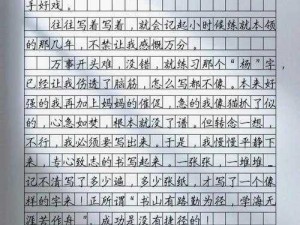 手好戏。
往往写着写着，就会记起小时候练就本领
的那几年，不禁让我感概万分。
万事开头难，没错，就练习那个“杨”字
已经让我伤透了脑筋，怎么写都不像。本来好
强的我再加上妈妈的催促，急的我像猫抓了似
的，心急如焚，根本就没了谱。但转念一想，
不行，我必须要写出来。于是，我慢慢平静下
来，专心致志的书写起来，一张张，一堆堆…
记不清写了多少遍，多少张纸，才写了一个像
样的字来！正所谓“书山有路勤为径，学海无
涯苦作舟”。成功是没有捷径的！